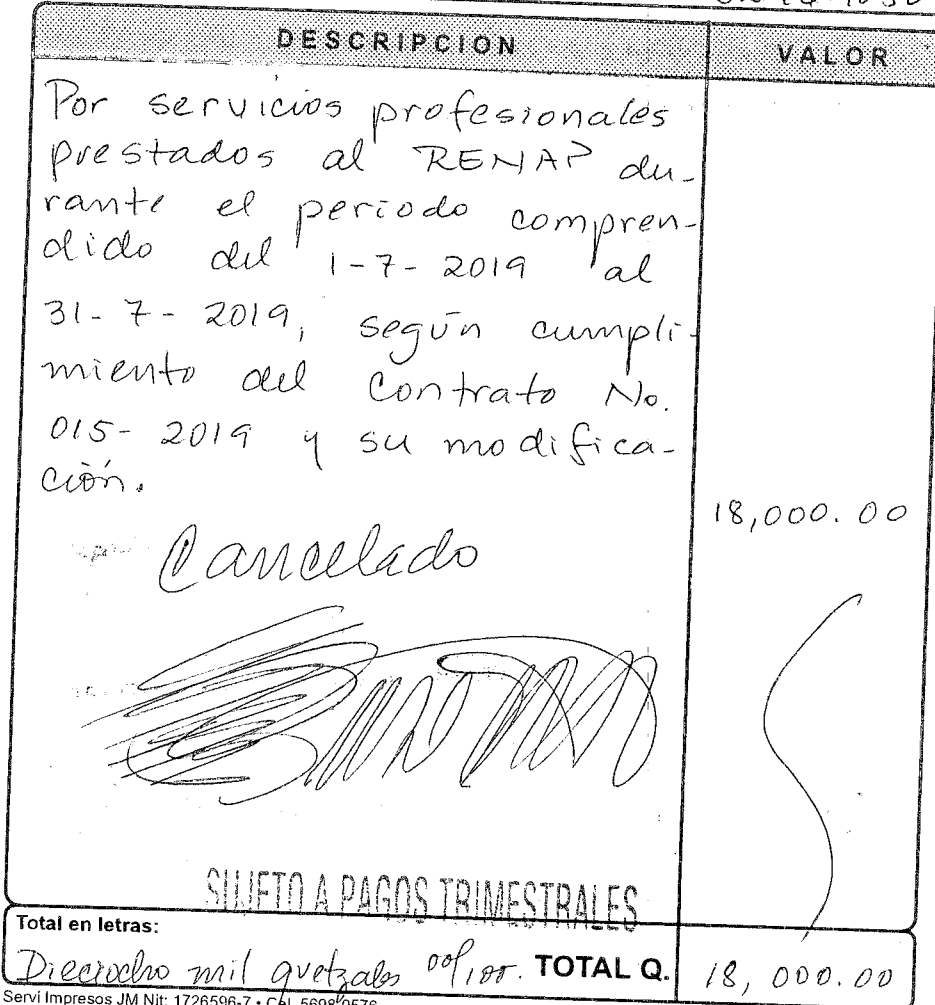 DESCRIPCION VALOR
Por servicios profesionales
prestados al RENAP du-
rante el periodo compren-
dido del 1-7-2019 al
31-7-2019, según cumpli-
miento del Contrato No.
015-2019 y su modifica-
ción.
18,000.00
Cancelado
SUJETO A PAGOS TRIMESTRALES
Total en letras:
Dieciocho mil quetzales 00/100. TOTAL Q. 18,000.00
Servi Impresos JM Nit: 1726596-7 • Cel. 5608 0576